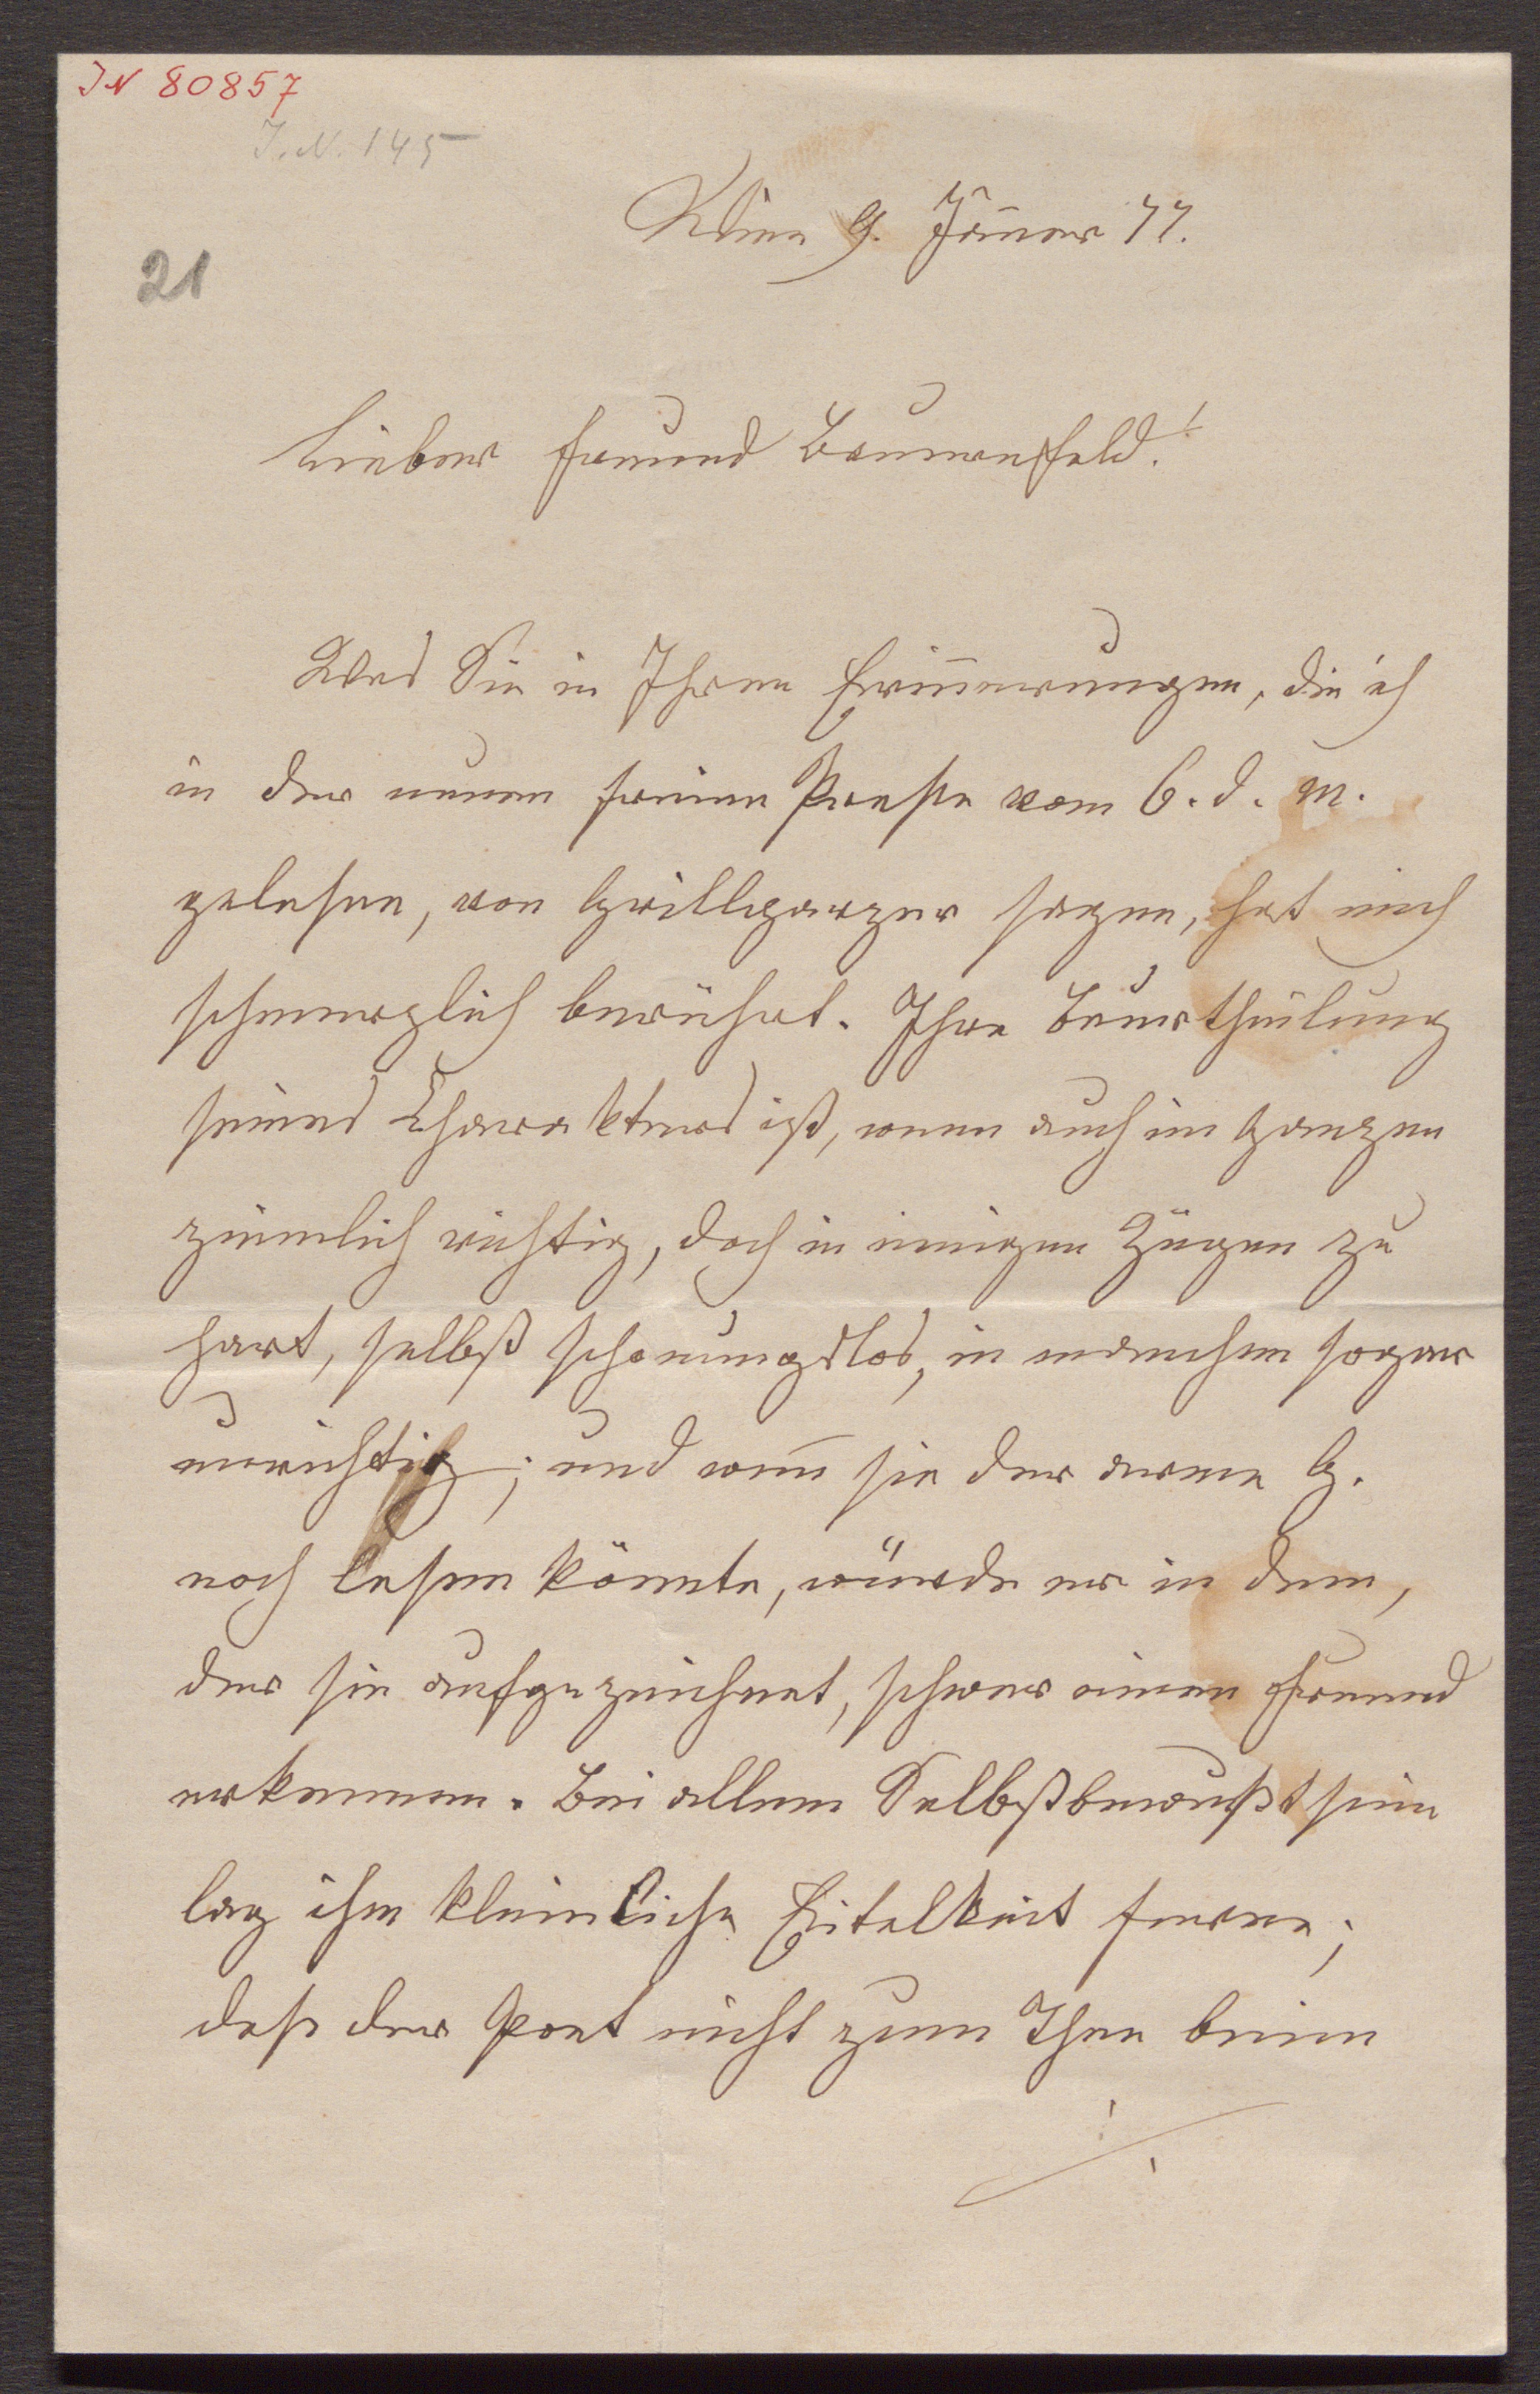 IN 80857
I.N. 145
Wien 9. Jäner 77.
21
Lieber Freund Bauernfeld!
Was Sie in Ihren Erin̄erungen, die ich
in der neuen freien Presse vom 6. d. M.
gelesen, von Grillparzer sagen, hat mich
schmerzlich berührt. Ihre Beurtheilung
seines Charakters ist, wenn auch im Ganzen
ziemlich richtig, doch in einigen Zügen zu
hart, selbst schonungslos, in manchem sogar
unrichtig; und wen̄ sie der arme G.
noch lesen könnte, würde er in dem,
der sie aufgezeichnet, schwer einen Freund
erkennen. Bei allem Selbstbewußtsein
lag ihm kleinliche Eitelkeit ferne;
daß der Poet nicht zum Thee beim